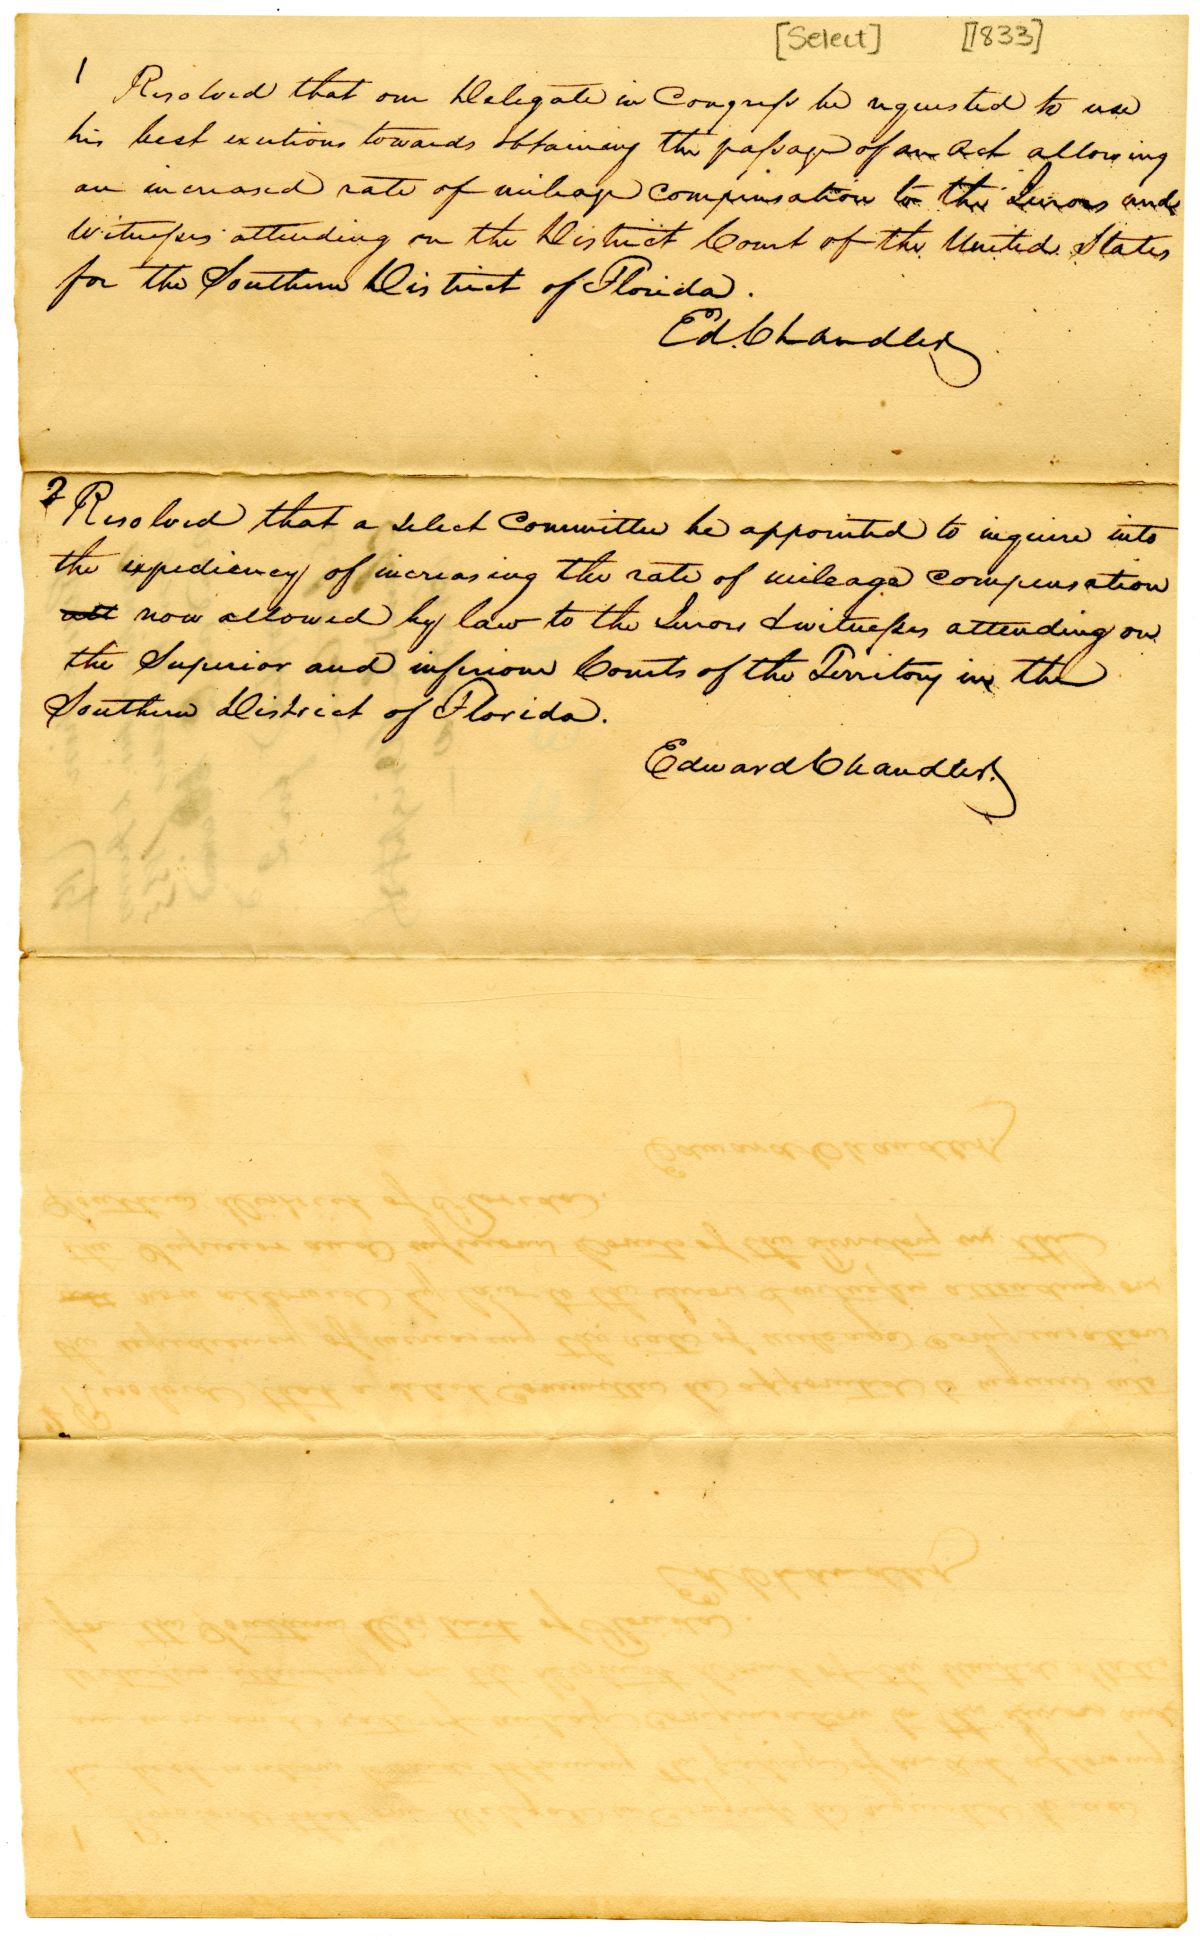 [Select] [1833]
1 Resolved that our Delegate in Congress be requested to use
his best exertions towards obtaining the passage of an Act allowing
an increased rate of mileage compensation to the Jurors and
Witnesses attending on the District Court of the United States
for the Southern District of Florida.
Ed. Chandler
2 Resolved that a select Committee be appointed to inquire into
the expediency of increasing the rate of mileage compensation
now allowed by law to the Jurors & witnesses attending on
the Superior and inferiour Courts of the Territory in the
Southern District of Florida.
Edward Chandler.